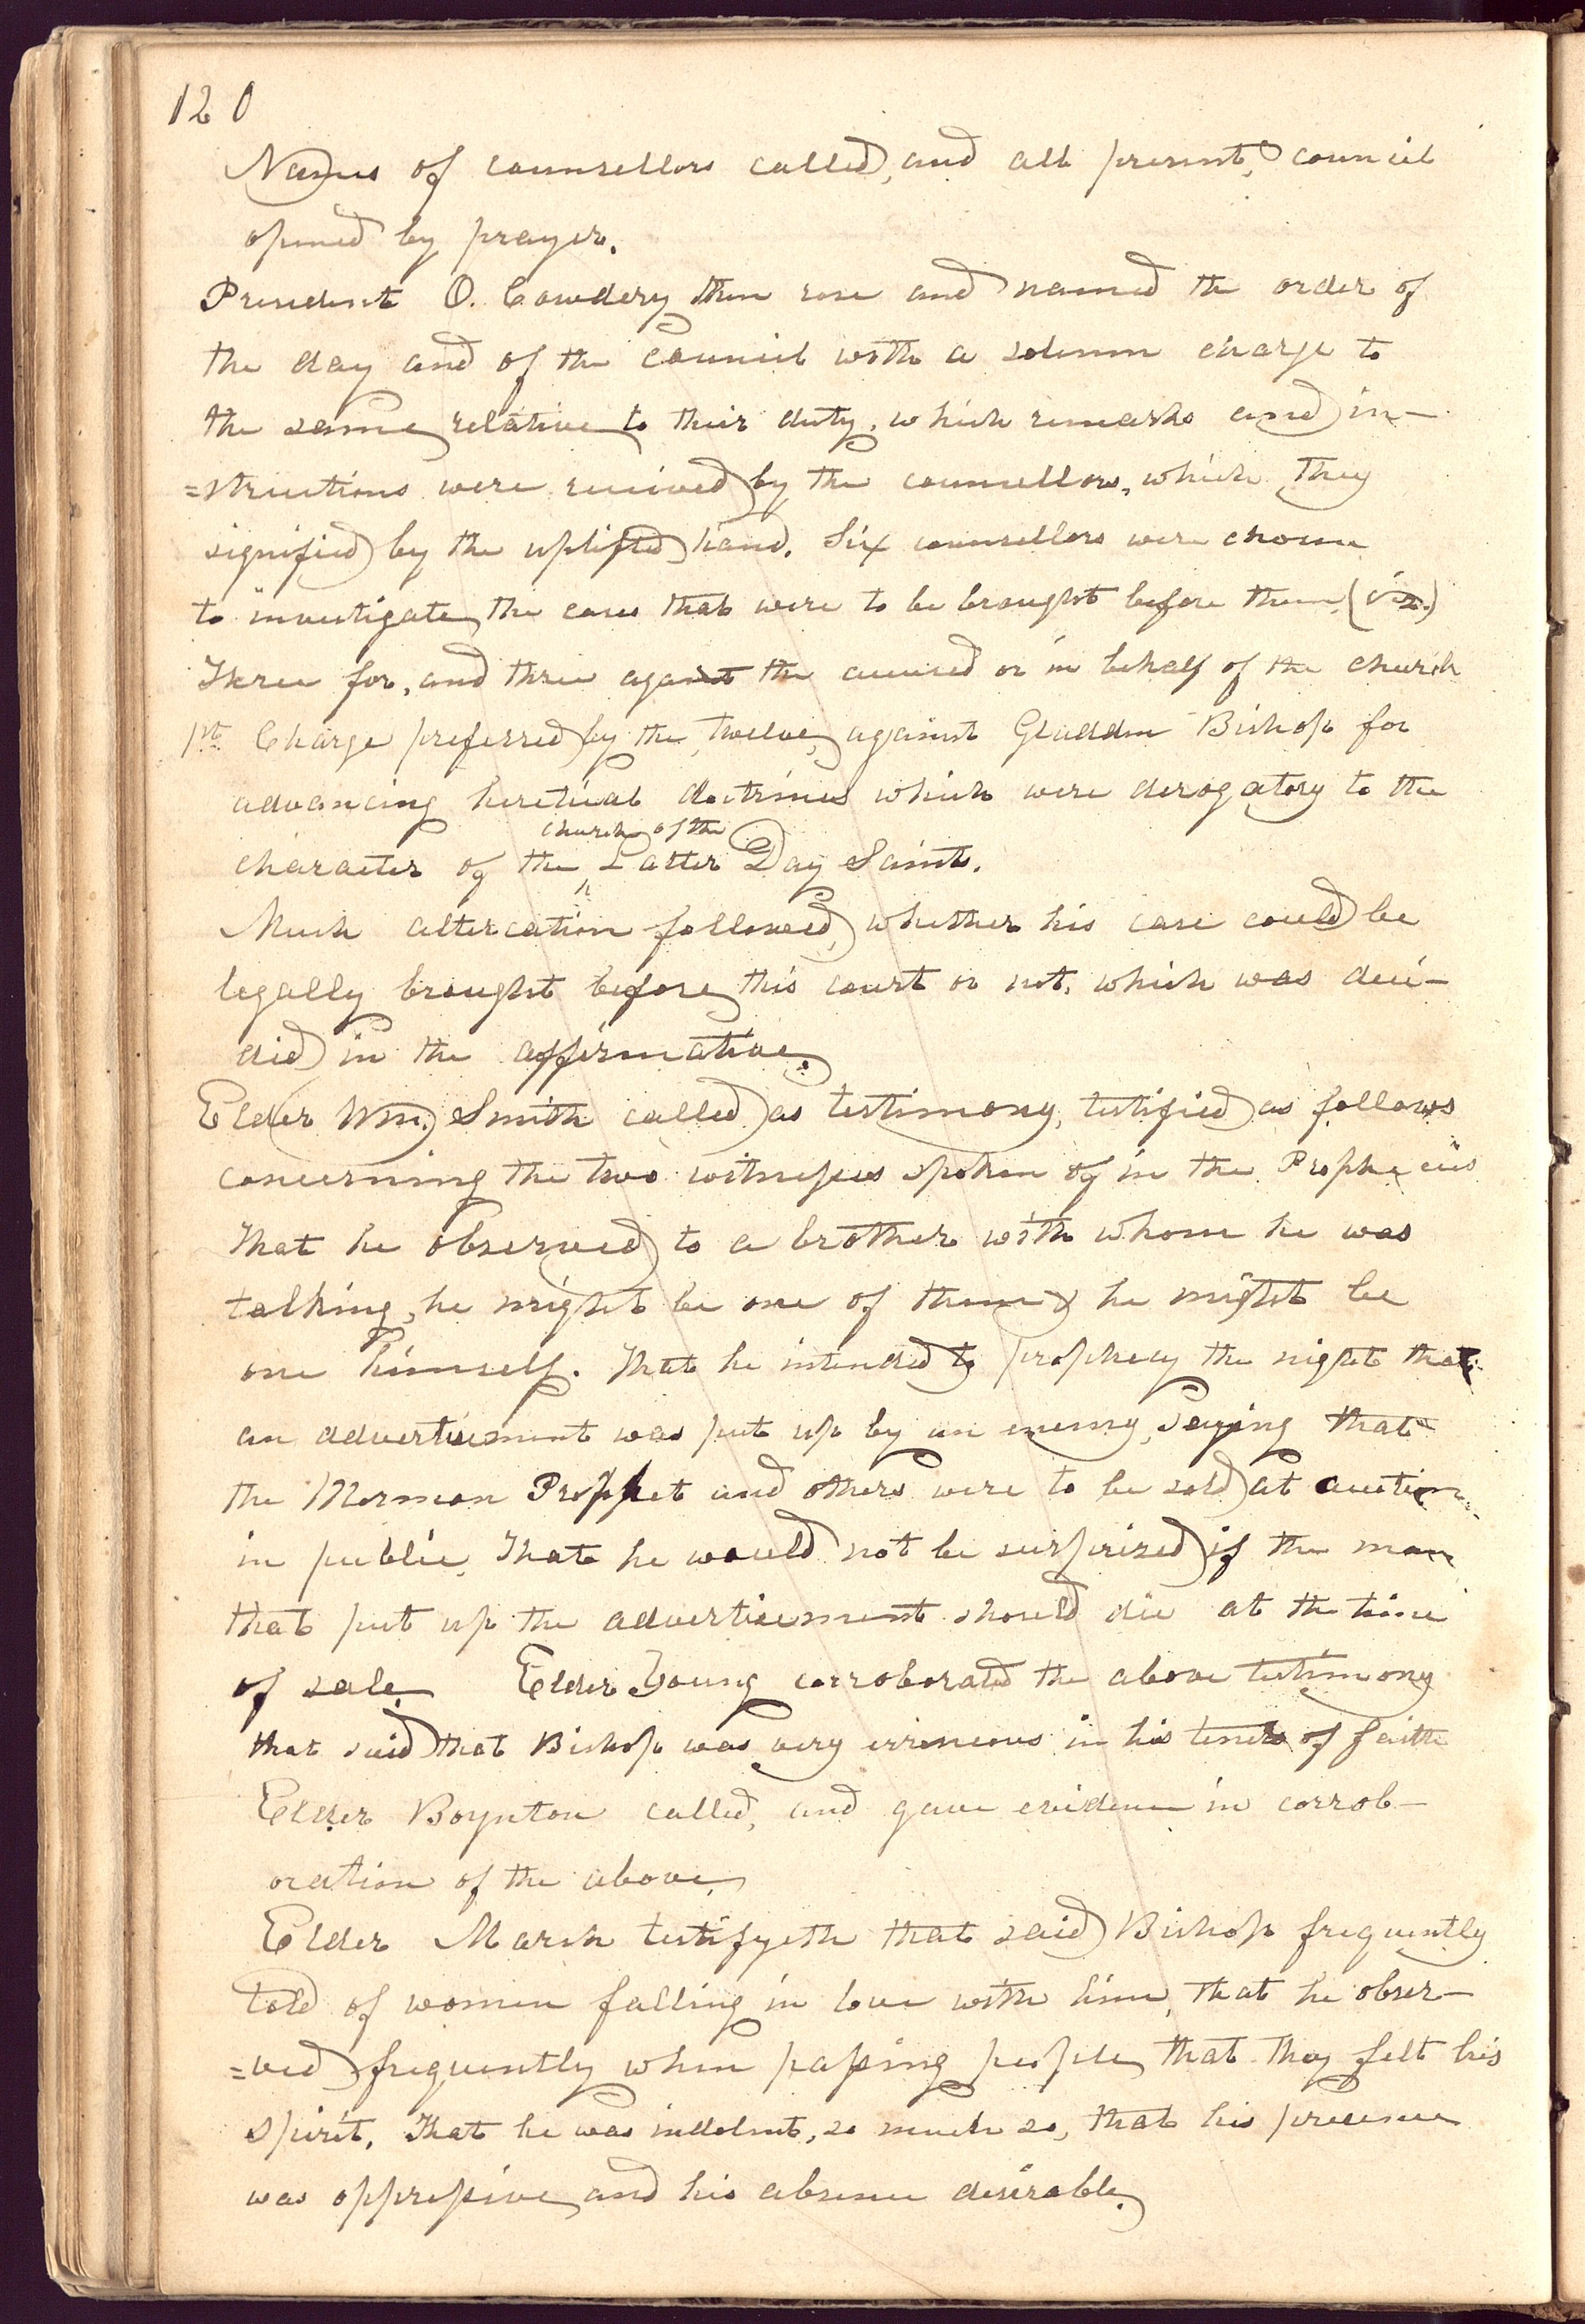 120
Names of counsellors called, and all present, council
opened by prayer.
President O. Cowdery then rose and named the order of
the day and of the Council with a solemn charge to
the same relative to their duty, which remarks and in-
=structions were received by the counsellors, which they
signified by the uplifted hand. Six counsellors were chosen
to investigate the cases that were to be brought before them, (viz.)
Three for, and three against the accused or in behalf of the church
1st Charge preferred by the twelve, against Gladden Bishop for
advancing heretical doctrines which were derogatory to the
church of the
character of the ^ Latter Day Saints.
Much altercation followed, whether his case could be
legally brought before this court or not, which was deci-
ded in the affirmative.
Elder Wm. Smith called as testimony, testified as follows
concerning the two witnesses spoken of in the Prophecies
That he observed to a brother with whom he was
talking, he might be one of them & he might be
one himself. That he intended to prophecy the night that
an advertisement was put up by an enemy, saying that
the Mormon Prophet and others were to be sold at auction
in public, That he would not be surprized if the man
that put up the advertisement should die at the time
of sale. Elder Young corroborated the above testimony
that said that Bishop was very erroneous in his tenets of faith
Elder Boynton called, and gave evidence in corrob-
oration of the above,
Elder Marsh testifyeth that said Bishop frequently
told of women falling in love with him, that he obser-
=ved frequently when passing people, that they felt his
spirit. That he was indolent, so much so, that his presence
was oppressive, and his absence desirable.